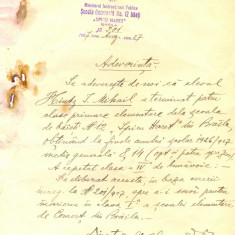 Ministerul Instrucțiunii Publice
Școala Generală No. 12 băeți
"SPIRU HARET"
No 201
1 Aug. 27
Adeverință
Se adeverește de noi că elevul
Hintz I. Mihail a terminat patru
clase primare elementare dela școala
de băieți No 12 „Spiru Haret” din Brăila,
obținând la finele anului școlar 1926/927
media generală 8,14
A repetat clasa IV
S'a eliberat această în baza cererii
înreg. la No 201/927 spre a-i servi pentru
înscriere în clasa I a școalei elementare
de Comerț din Brăila.